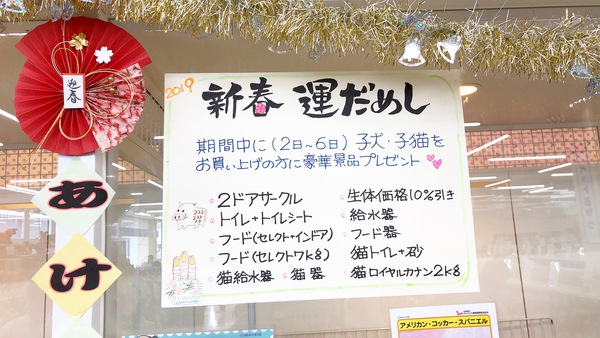 迎春
あ
け
2019
新春 運だめし
期間中に(2日~6日)子犬・子猫を
お買い上げの方に豪華景品プレゼント
2ドアサークル
トイレ+トイレシート
フード(セレクト+インドア)
フード(セレクト7kg)
猫給水器 猫器
生体価格10%引き
給水器
フード器
猫トイレ+砂
猫ロイヤルカナン2kg
アメリカン・コッカー・スパニエル